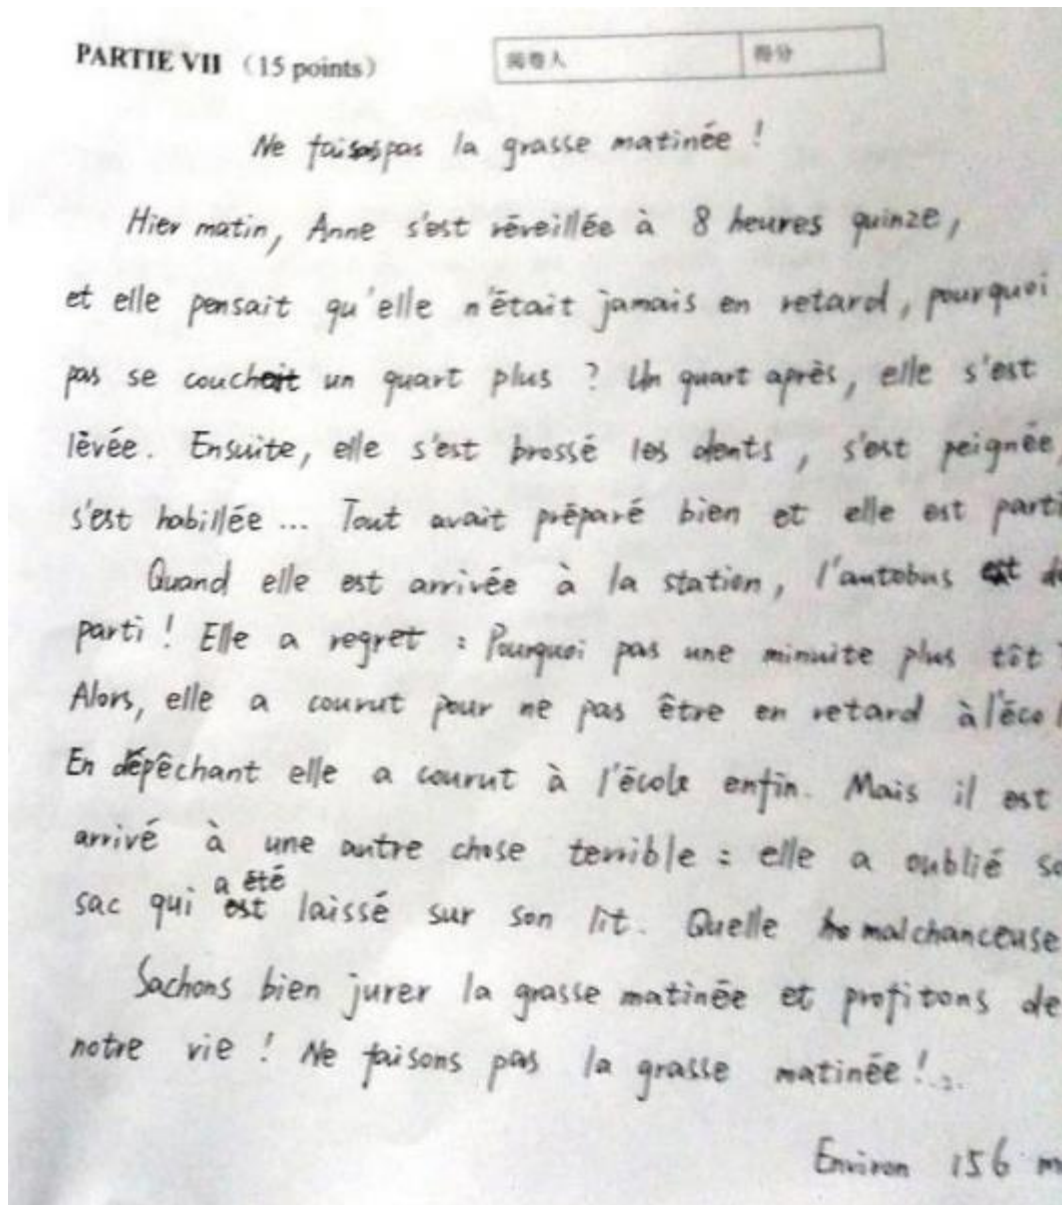 PARTIE VII （15 points）
阅卷人 得分
Ne faisons pas la grasse matinée !
Hier matin, Anne s'est réveillée à 8 heures quinze,
et elle pensait qu'elle n'était jamais en retard, pourquoi
pas se couchait un quart plus ? Un quart après, elle s'est
lévée. Ensuite, elle s'est brossé les dents, s'est peignée,
s'est habillée ... Tout avait préparé bien et elle est parti
Quand elle est arrivée à la station, l'autobus est dé
parti ! Elle a regret : Pourquoi pas une minuite plus tôt ?
Alors, elle a courut pour ne pas être en retard à l'écol
En dépêchant elle a courut à l'école enfin. Mais il est
arrivé à une autre chose terrible : elle a oublié so
a été
sac qui est laissé sur son lit. Quelle malchanceuse
Sachons bien jurer la grasse matinée et profitons de
notre vie ! Ne faisons pas la grasse matinée !
Environ 156 m